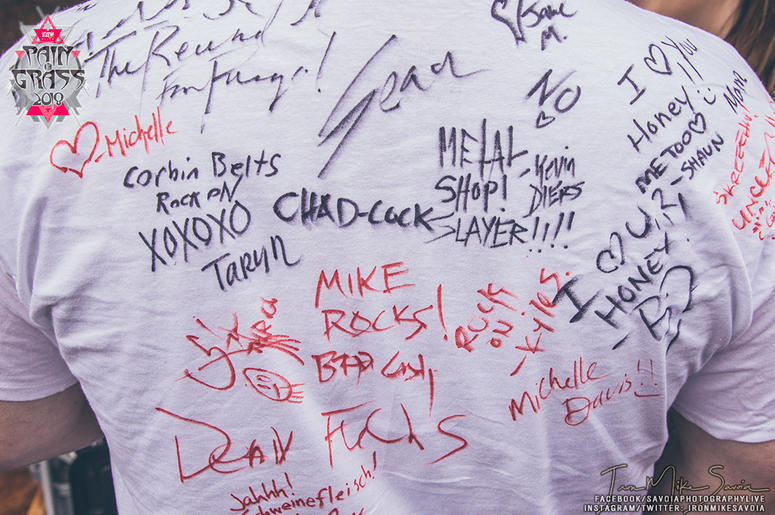 KSW
PAIN
IN
GRASS
2019
The Round
♡-Michelle
Sean
Jane
M.
NO
♡
I ♡ You
Honey!!
ME TOO♡
-SHAUN
Corbin Belts
Rock ON
XOXOXO
Taryn
CHAD-COCK
METAL
SHOP!
SLAYER!!!!
-Kevin
DIERS
I ♡ U,
HONEY!
MIKE
ROCKS!
ROCK
ON!
-Kyle
Michelle
Davis!!
DEAN FUCHS
Jahhh!
Schweinefleisch!
Iron Mike Savoia
FACEBOOK/SAVOIAPHOTOGRAPHYLIVE
INSTAGRAM/TWITTER: @IRONMIKESAVOIA